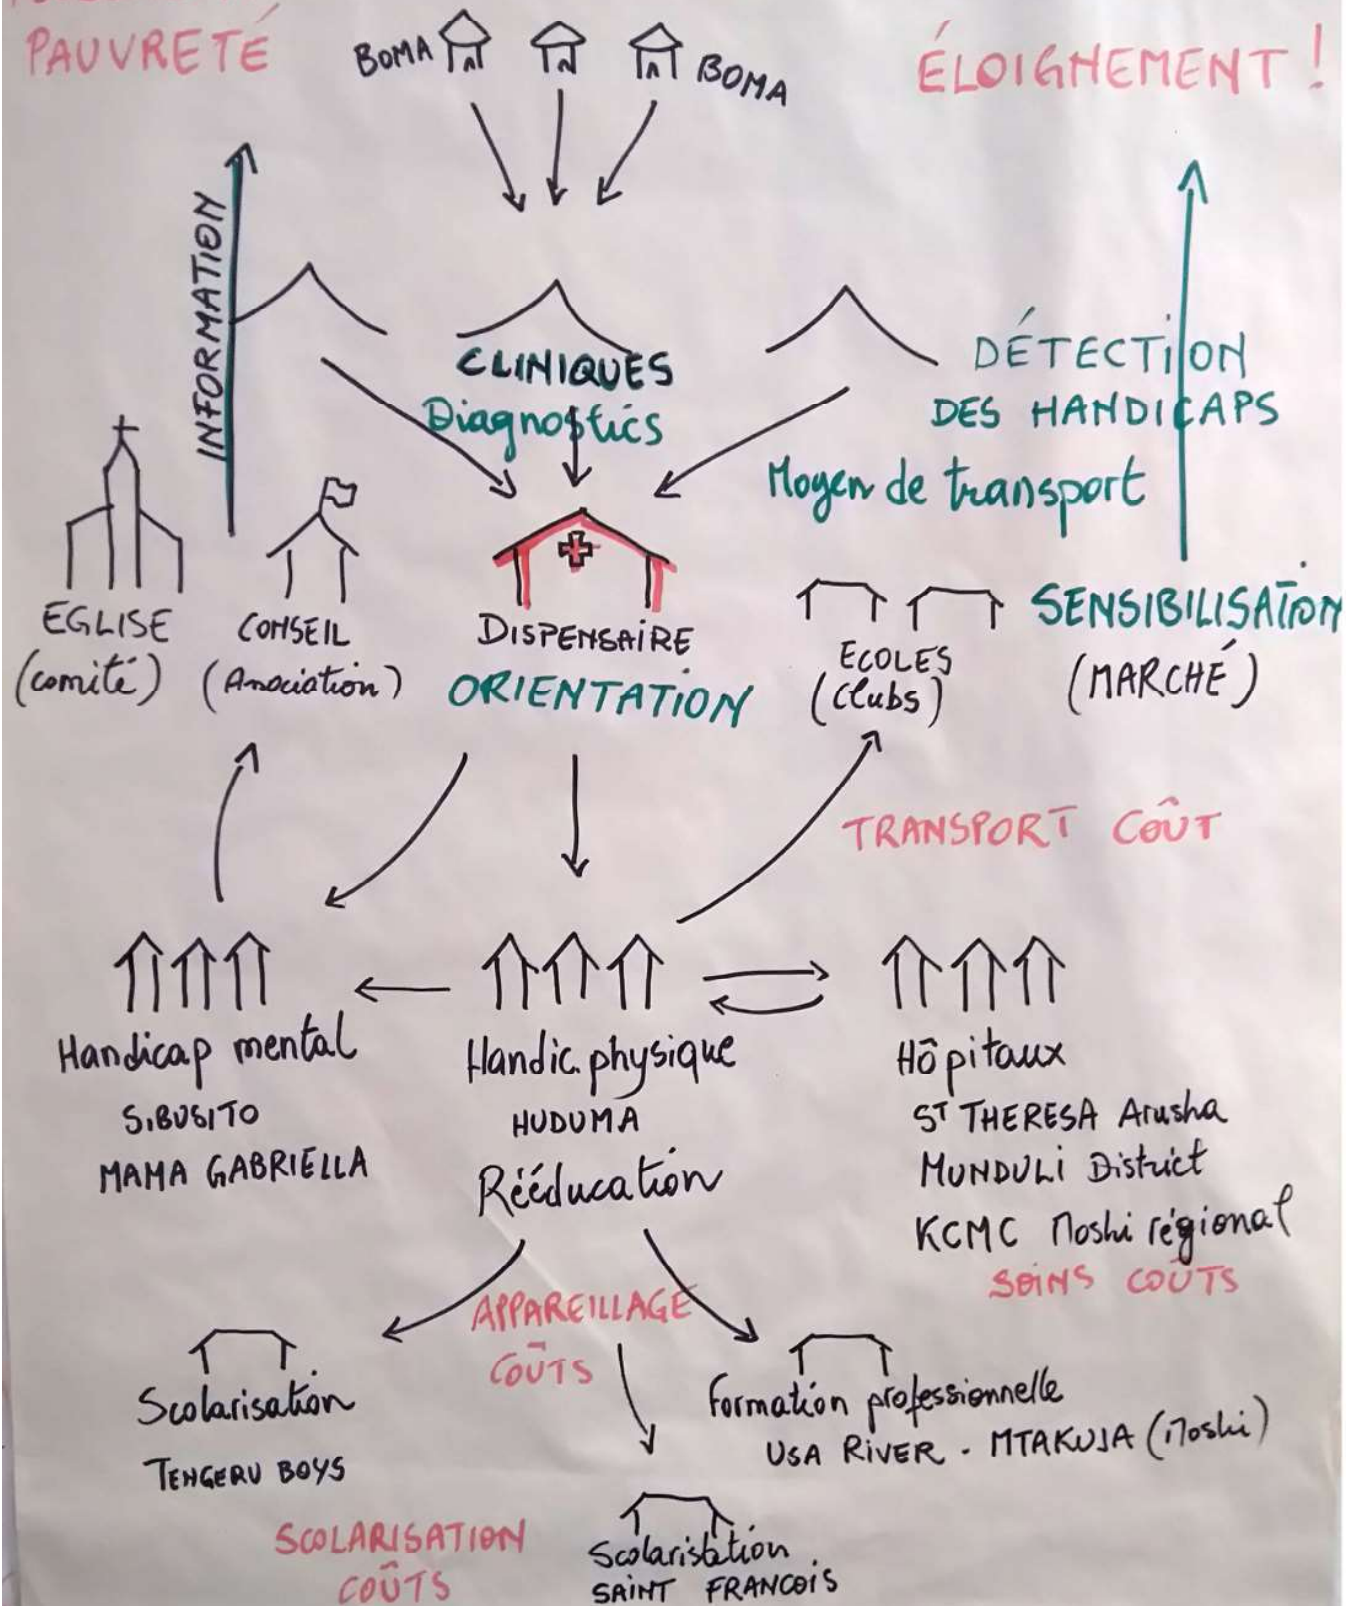 PAUVRETÉ
BOMA
BOMA
ÉLOIGNEMENT !
INFORMATION
CLINIQUES
Diagnostics
DÉTECTION
DES HANDICAPS
Moyen de transport
EGLISE
(comité)
CONSEIL
(Association)
DISPENSAIRE
ORIENTATION
ECOLES
(Clubs)
SENSIBILISATION
(MARCHÉ)
TRANSPORT COÛT
Handicap mental
SIBUSITO
MAMA GABRIELLA
Handic. physique
HUDUMA
Rééducation
Hôpitaux
ST THERESA Arusha
MUNDULI District
KCMC Moshi régional
SOINS COÛTS
APPAREILLAGE
COÛTS
Scolarisation
TENGERU BOYS
Formation professionnelle
USA RIVER - MTAKUJA (Moshi)
SCOLARISATION
COÛTS
Scolarisation
SAINT FRANCOIS